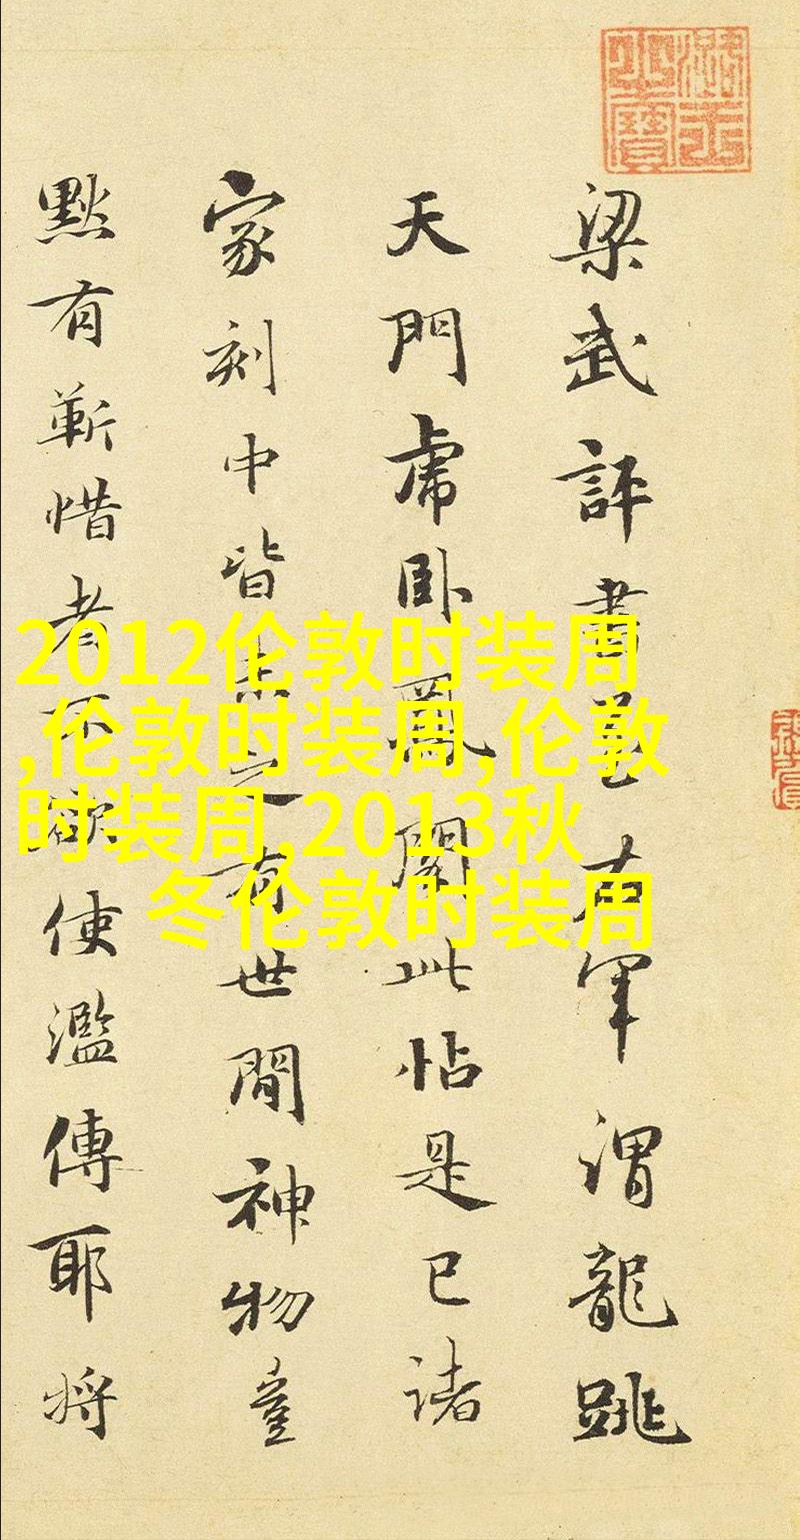 梁武評書至右軍謂龍跳
天門虎卧鳳閣此帖是已諸
家刻中皆之有世間神物豈
黙有靳惜者不欲使濫傳耶将
2012伦敦时装周
,伦敦时装周,伦敦
时装周,2013秋
冬伦敦时装周